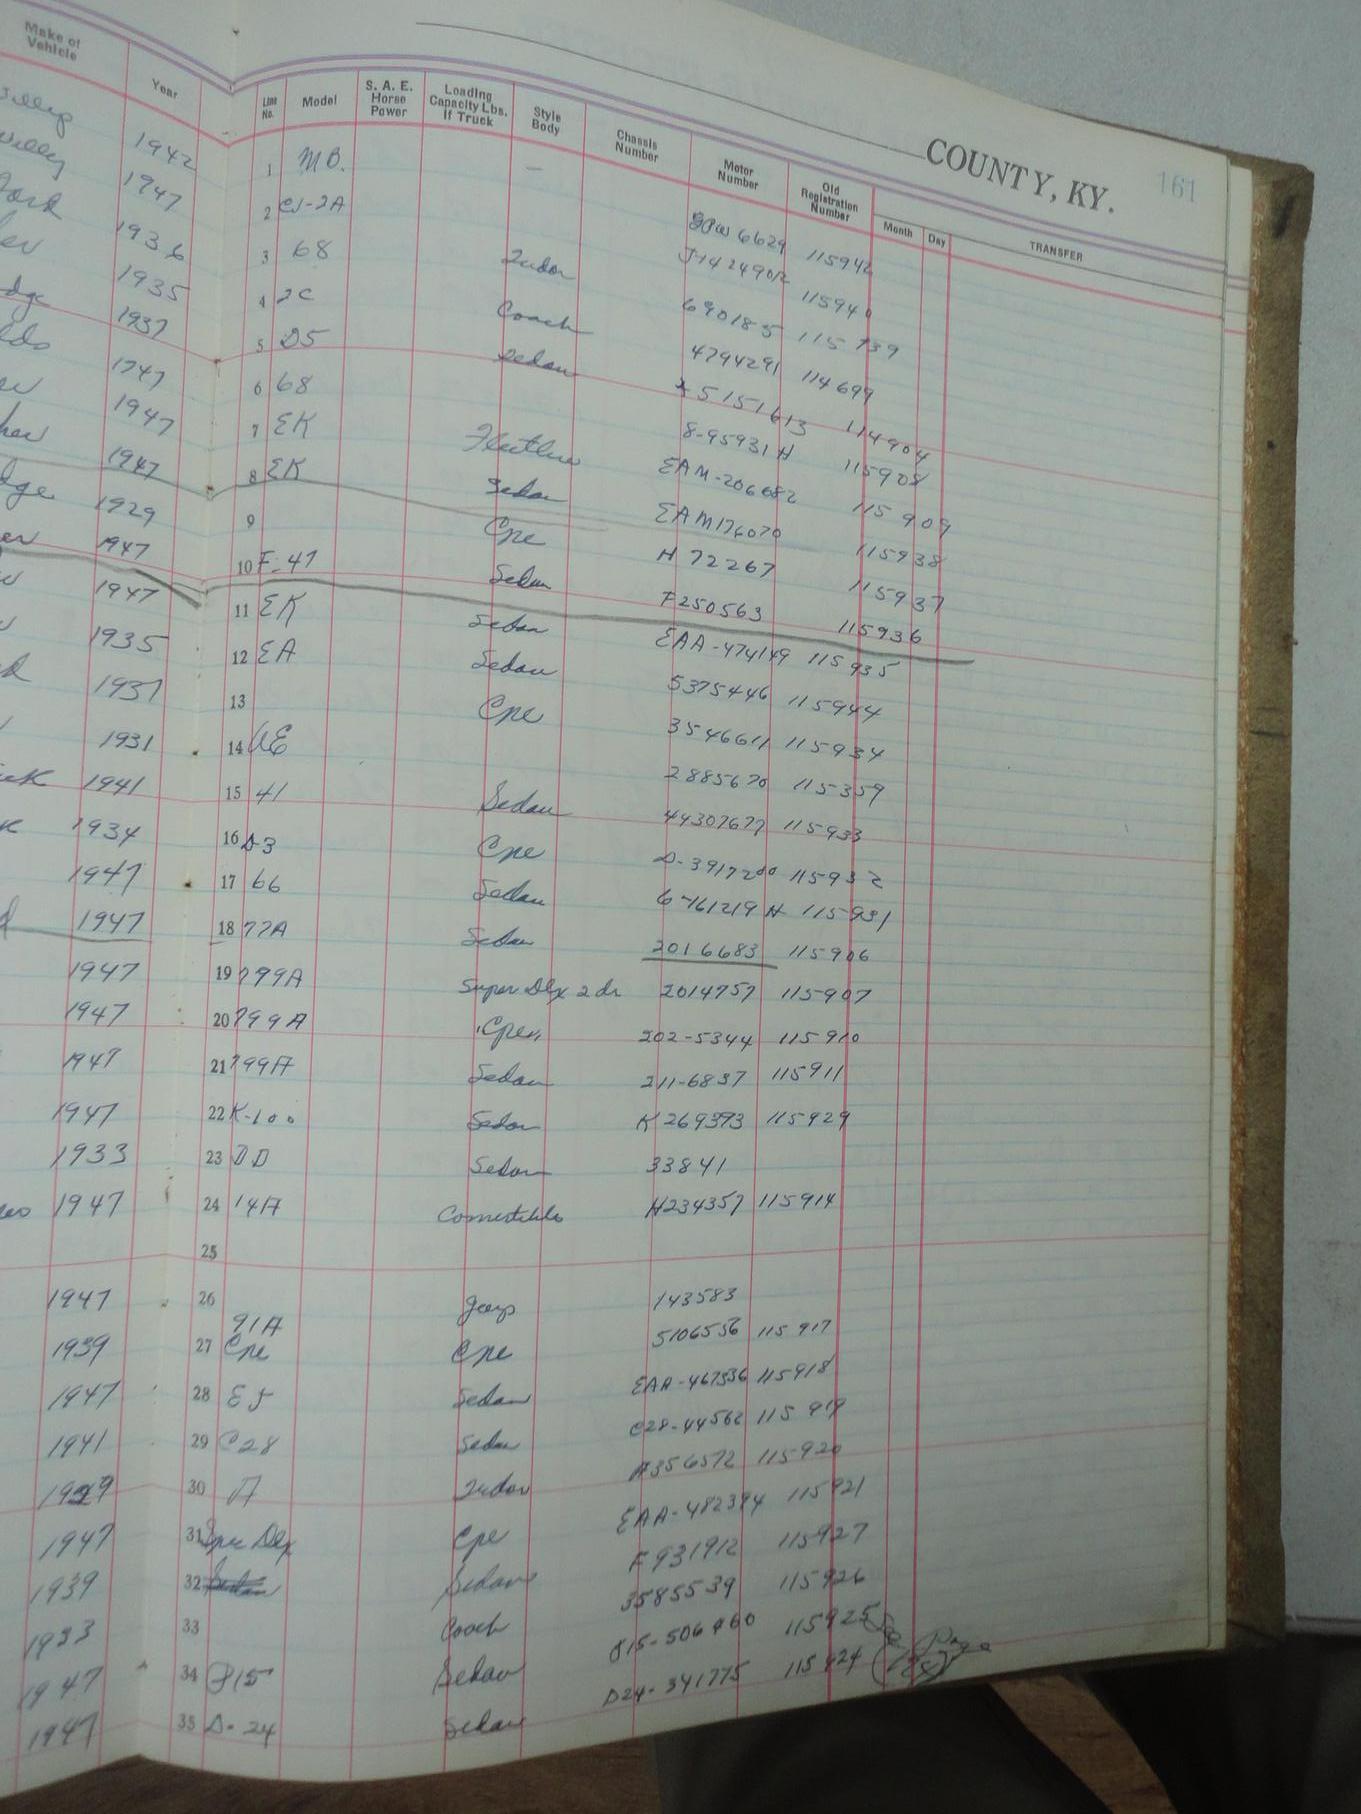 Make of Vehicle Year Line No. Model S. A. E. Horse Power Loading Capacity Lbs. If Truck Style Body Chassis Number Motor Number Old Registration Number Month Day TRANSFER
COUNTY, KY. 161
1942 1 MB. — 6629 115942
1947 2 CJ-2A 115940
1936 3 68 Tudor 690185 115939
1935 4 2C Coach 4794291 114699
1937 5 D5 Sedan 5151613 114904
1947 6 68 8-95931H 115908
1947 7 EK Fleetline EAM-206682 115909
1947 8 EK Sedan EAM176070 115938
1929 9 Cpe H 72267 115937
1947 10 F-47 Sedan F250563 115936
1947 11 EK Sedan EAA-474149 115935
1935 12 EA Sedan 5375446 115944
1937 13 Cpe 3546611 115934
1931 14 2885670 115359
1941 15 41 Sedan 44307677 115933
1934 16 D3 Cpe 115932
1947 17 66 Sedan 6-161219 H 115931
1947 18 77A Sedan 2016683 115906
1947 19 799A Super Dlx 2 dr 2014757 115907
1947 20 799A Cpe 202-5344 115910
1947 21 799A Sedan 211-6837 115911
1947 22 K-100 Sedan K 269393 115929
1933 23 DD Sedan 33841
1947 24 14A H234357 115914
25
1947 26 Jeep 143583
91A
1939 27 Cpe Cpe 5106556 115917
1947 28 EJ Sedan EAA-467536 115918
1941 29 C28 Sedan C28-44562 115919
1929 30 A Tudor A356572 115920
1947 31 Spec Dlx Cpe EAA-482394 115921
1939 32 Sedan Sedan F931912 115927
1933 33 Coach 3585539 115926
1947 34 P15 Sedan P15-506460 115925 See Page
1947 35 D-24 Sedan D24-341775 115924